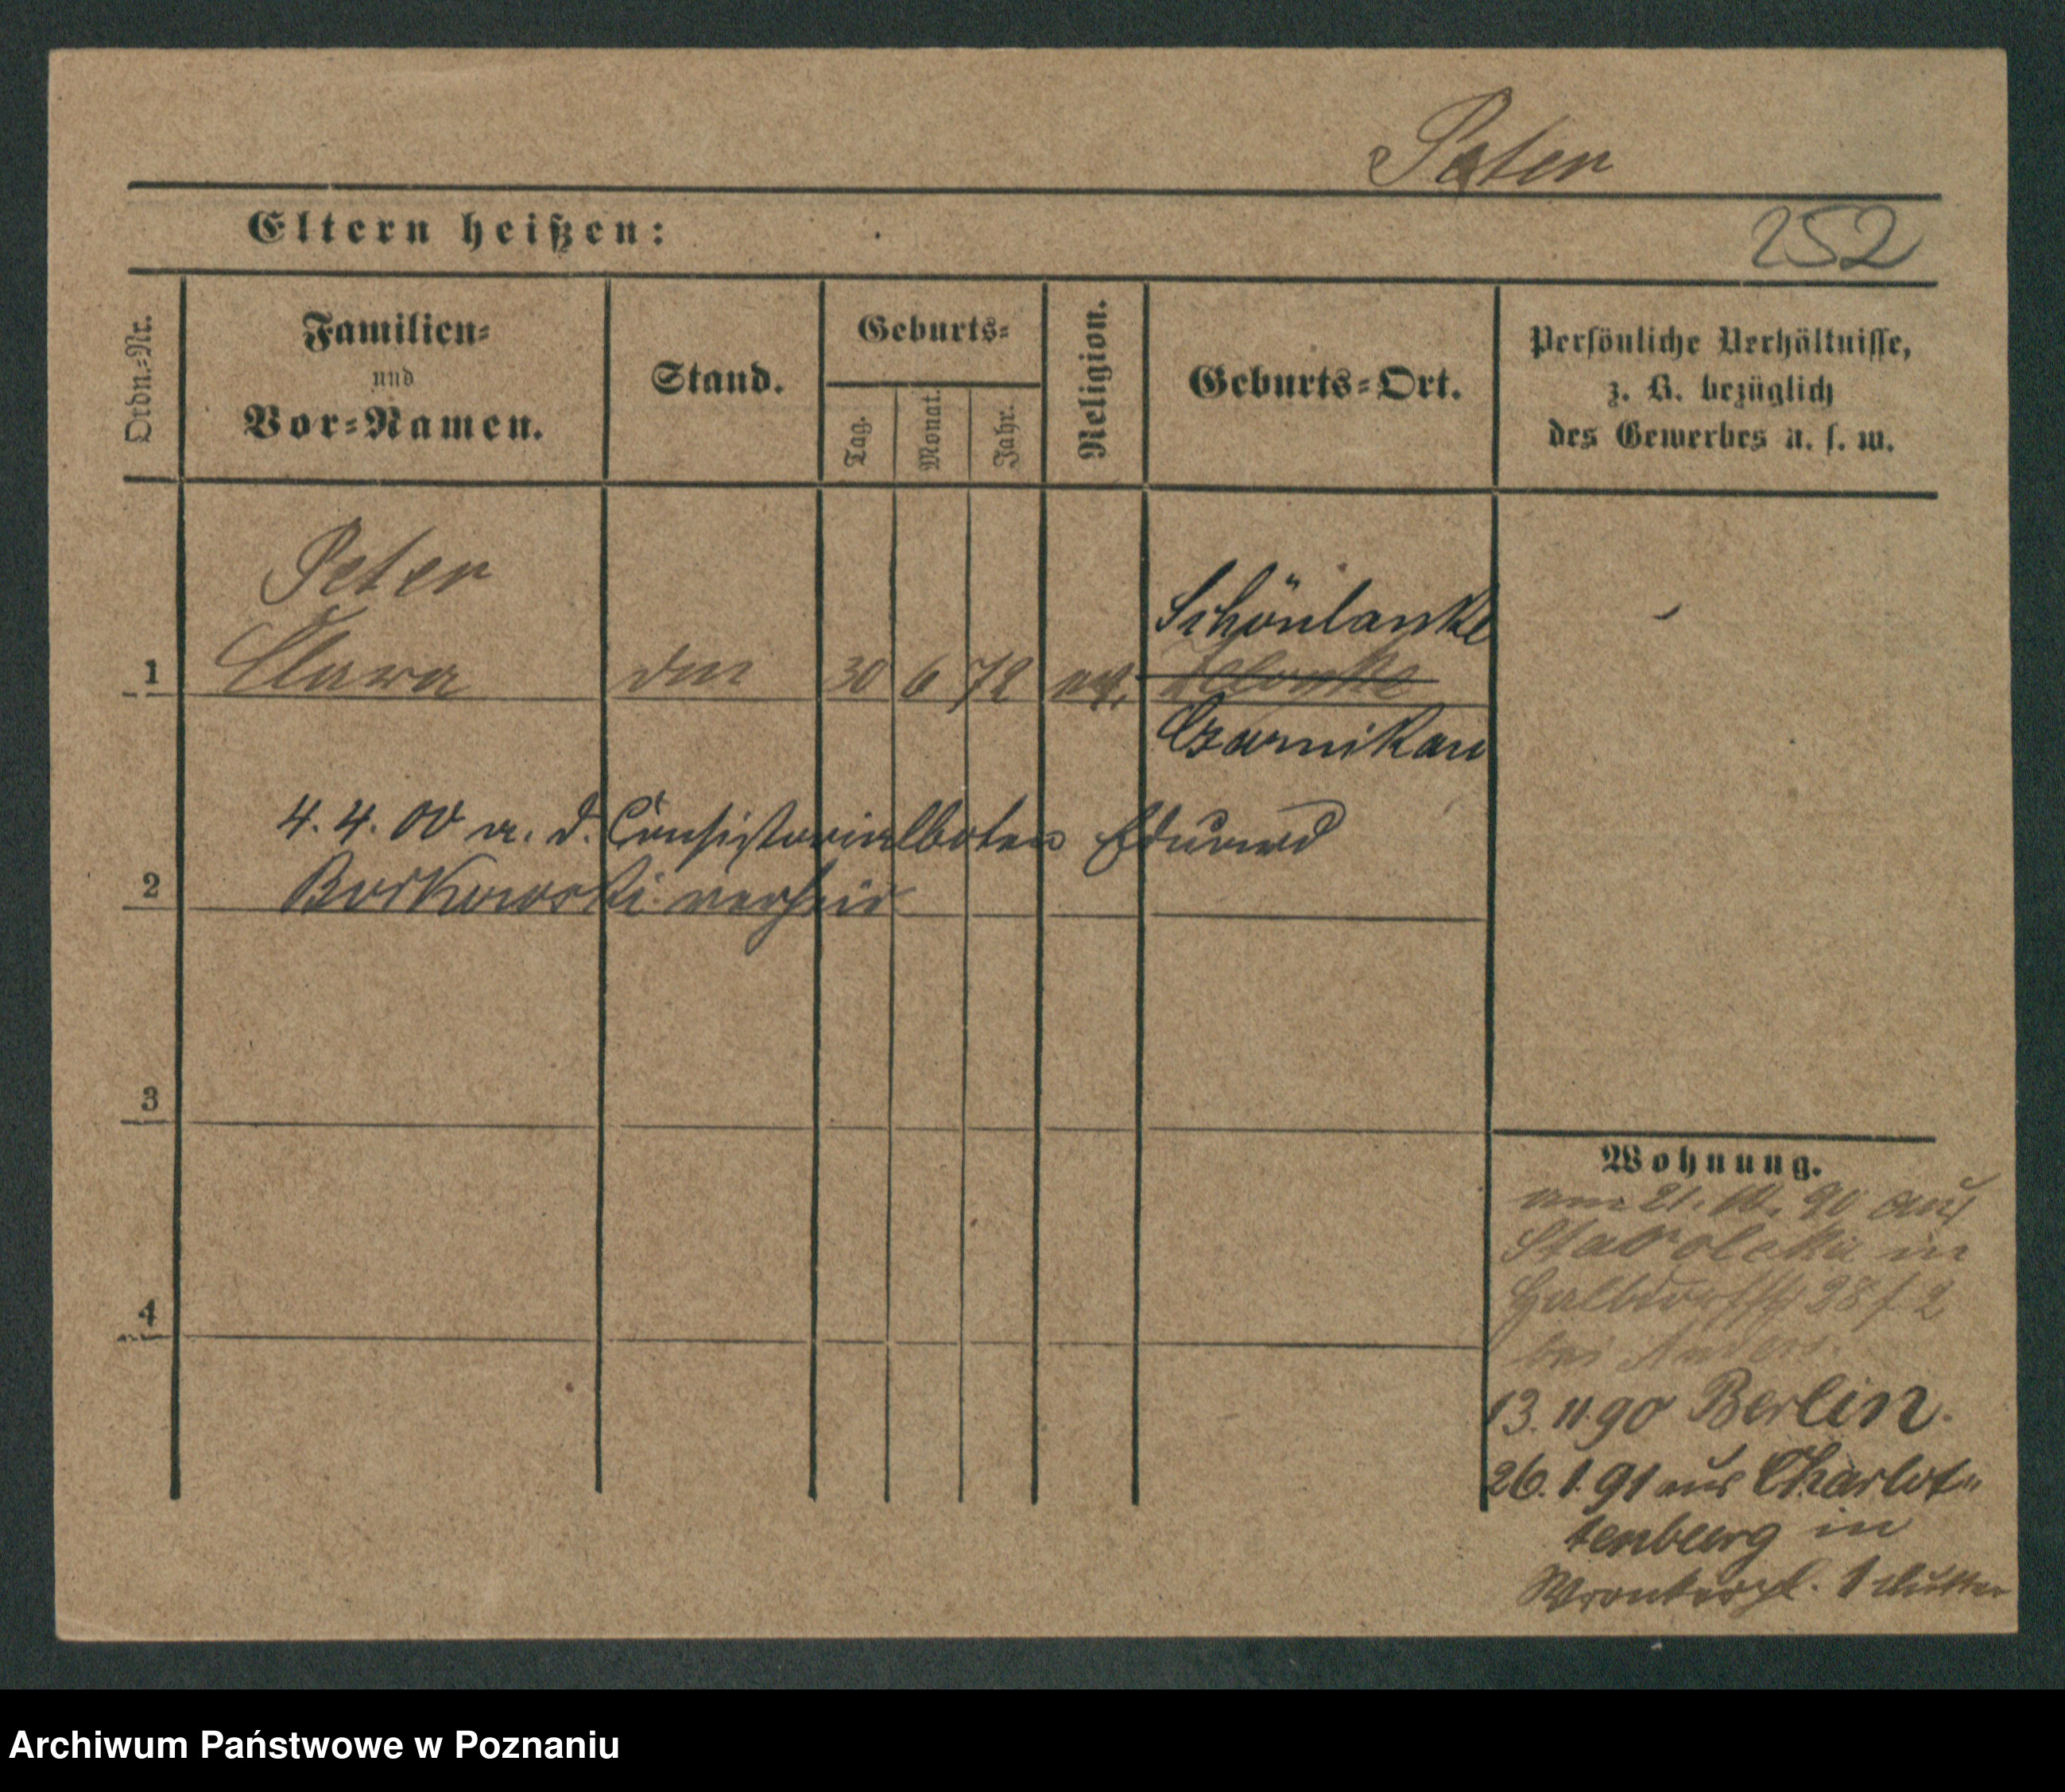 Peter
Eltern heißen:
252
Ordn.=Nr.
Familien=
und
Vor=Namen.
Stand.
Geburts=
Tag.
Monat.
Jahr.
Religion.
Geburts=Ort.
Persönliche Verhältnisse,
z. B. bezüglich
des Gewerbes u. s. w.
Peter
Schönlanke
1 Clara 30 6 72 ev.
Czarnikau
4. 4. 00 m. d. Consistorialboten Eduard
2 Borkowski verheir
3
4
Wohnung.
am 21. 10. 90 aus
Starolenka in
Halbdorfstr 28 f. 2
bei Anders.
13. 11 90 Berlin.
26. 1. 91 aus Charlot=
tenburg in
Wronkerpl. 1 Mutter
Archiwum Państwowe w Poznaniu